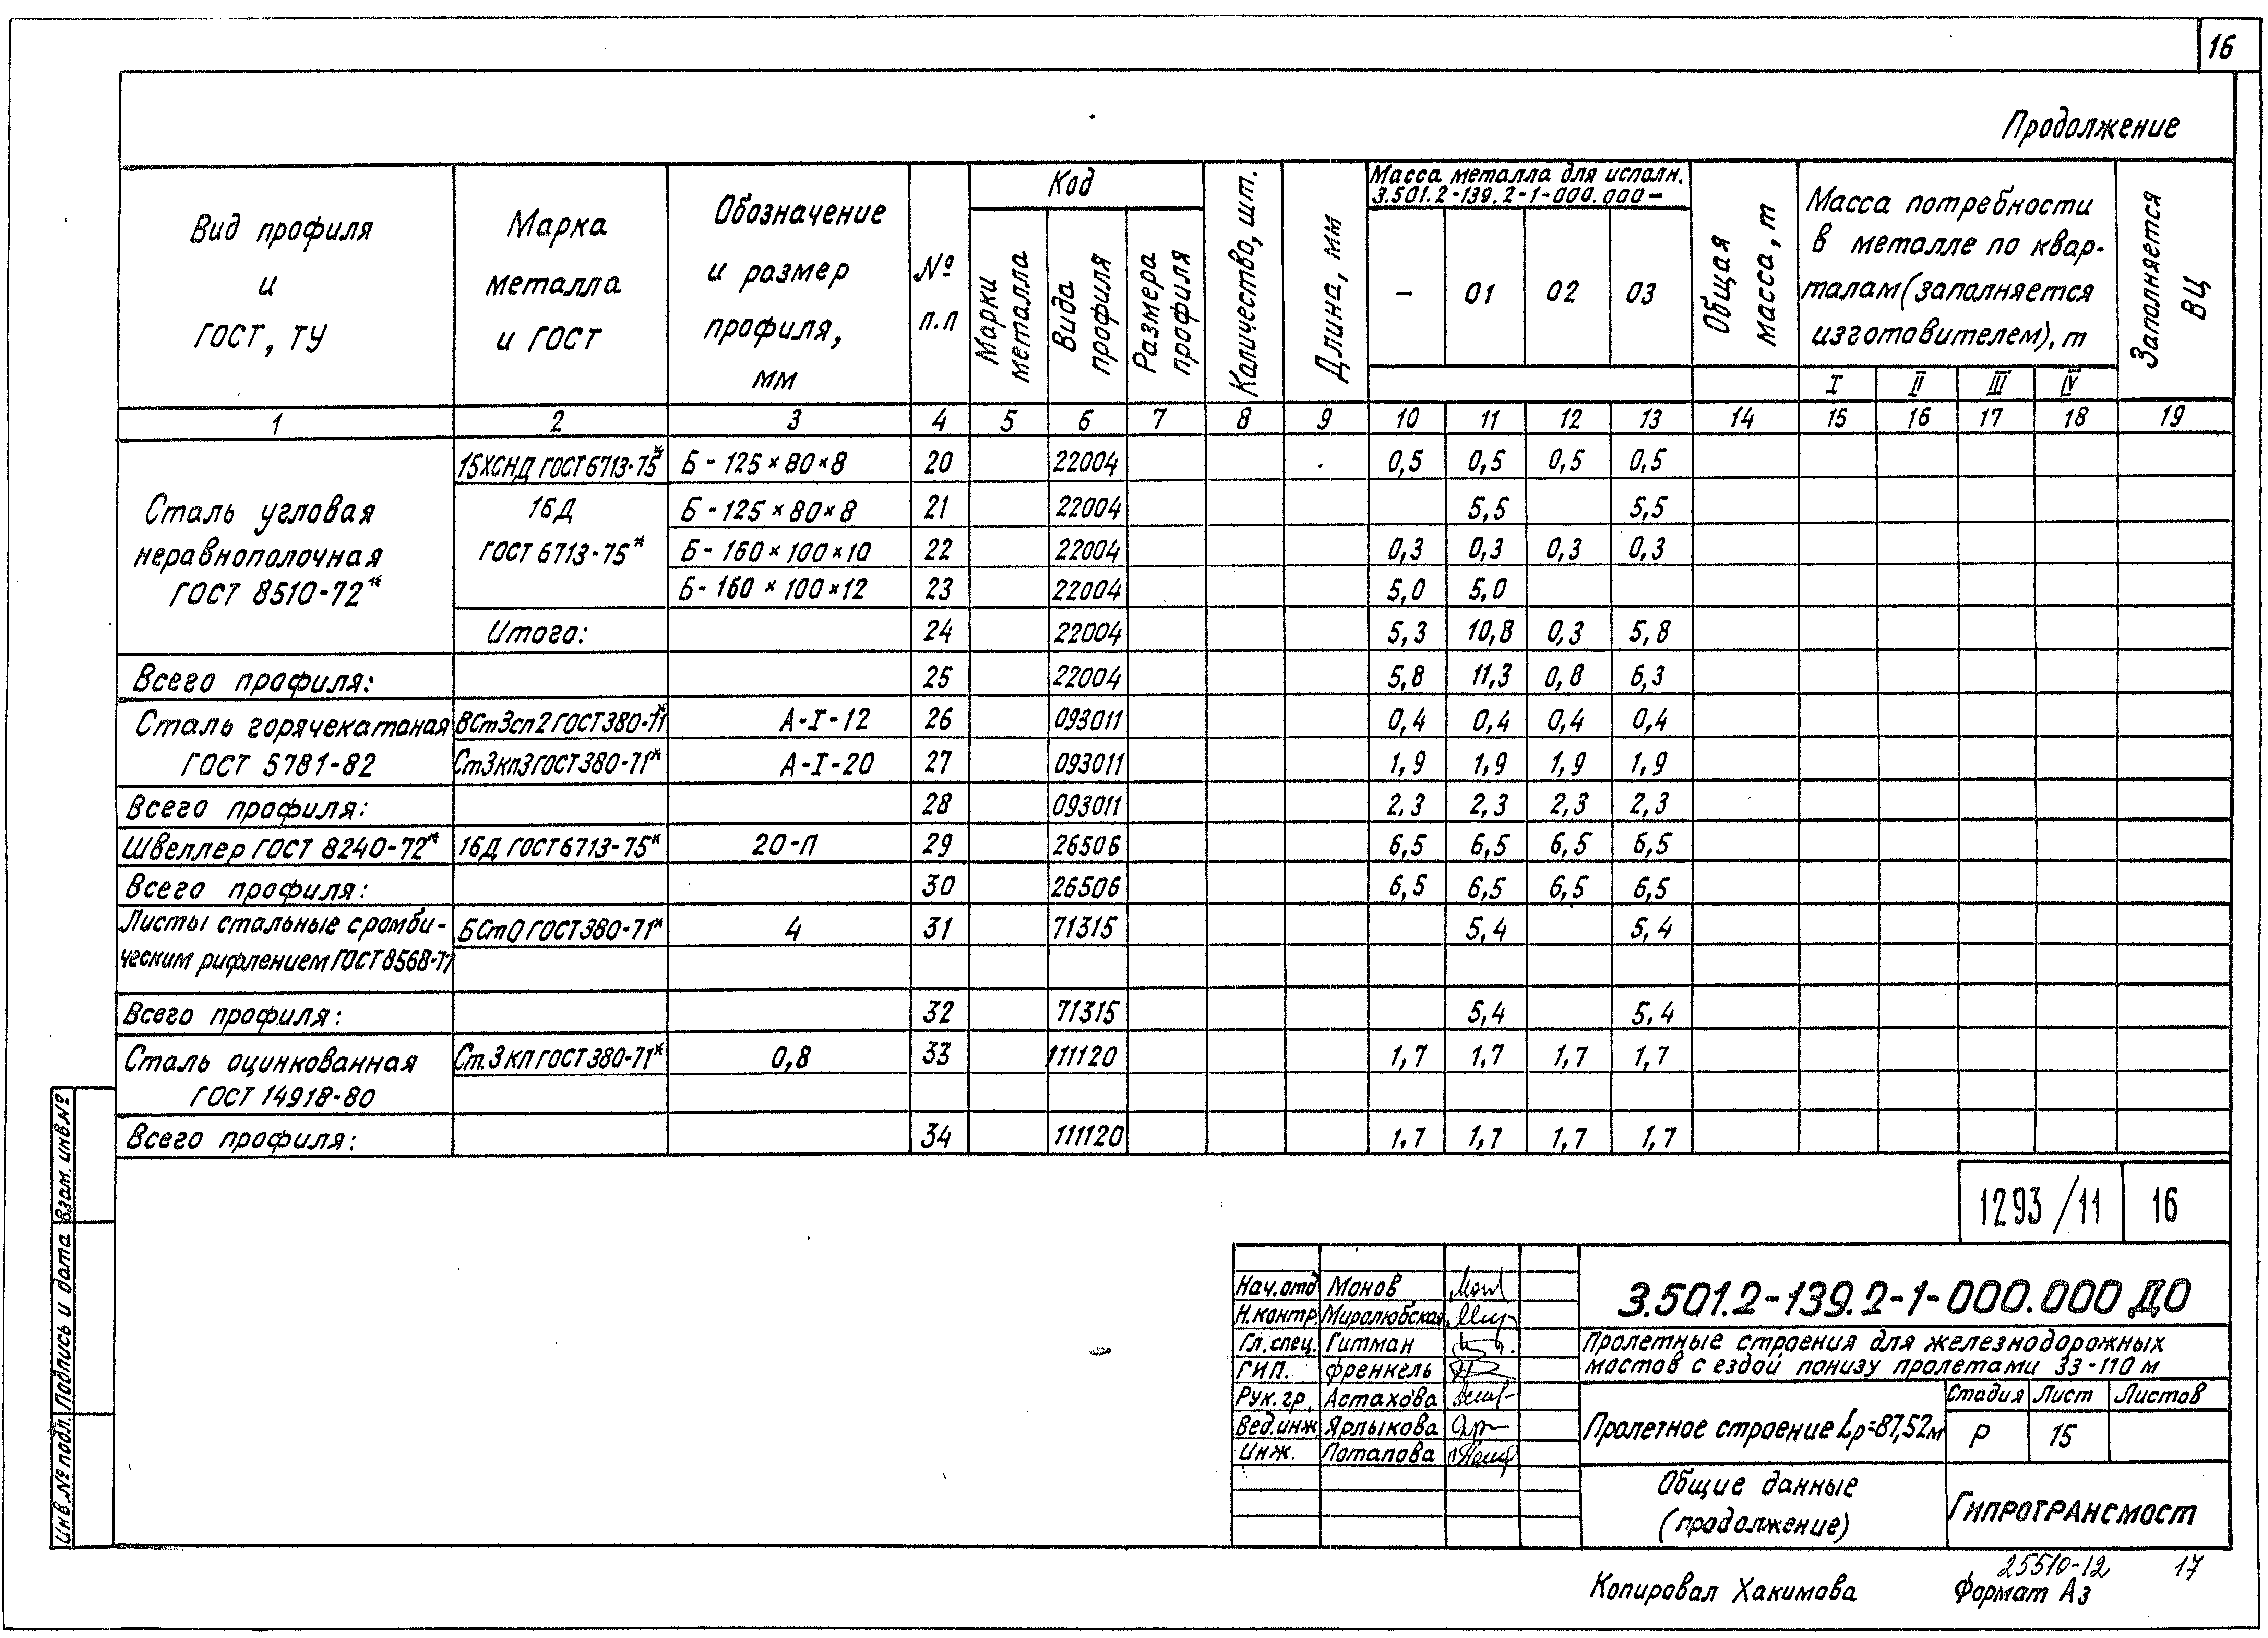 16
Продолжение
Вид профиля
и
ГОСТ, ТУ
Марка
металла
и ГОСТ
Обозначение
и размер
профиля,
мм
№
п.п
Код
Марки металла
Вида профиля
Размера профиля
Количество, шт.
Длина, мм
Масса металла для исполн.
3.501.2-139.2-1-000.000-
- 01 02 03
Общая масса, т
Масса потребности
в металле по квар-
талам (заполняется
изготовителем), т
I II III IV
Заполняется ВЦ
1 2 3 4 5 6 7 8 9 10 11 12 13 14 15 16 17 18 19
Сталь угловая
неравнополочная
ГОСТ 8510-72*
15ХСНД ГОСТ 6713-75* Б-125×80×8 20 22004 0,5 0,5 0,5 0,5
16Д Б-125×80×8 21 22004 5,5 5,5
ГОСТ 6713-75* Б-160×100×10 22 22004 0,3 0,3 0,3 0,3
Б-160×100×12 23 22004 5,0 5,0
Итого: 24 22004 5,3 10,8 0,3 5,8
Всего профиля: 25 22004 5,8 11,3 0,8 6,3
Сталь горячекатаная ВСт3сп2 ГОСТ 380-71* А-I-12 26 093011 0,4 0,4 0,4 0,4
ГОСТ 5781-82 Ст3кп3 ГОСТ 380-71* А-I-20 27 093011 1,9 1,9 1,9 1,9
Всего профиля: 28 093011 2,3 2,3 2,3 2,3
Швеллер ГОСТ 8240-72* 16Д ГОСТ 6713-75* 20-П 29 26506 6,5 6,5 6,5 6,5
Всего профиля: 30 26506 6,5 6,5 6,5 6,5
Листы стальные с ромби- БСт0 ГОСТ 380-71* 4 31 71315 5,4 5,4
ческим рифлением ГОСТ 8568-77
Всего профиля: 32 71315 5,4 5,4
Сталь оцинкованная Ст.3кп ГОСТ 380-71* 0,8 33 111120 1,7 1,7 1,7 1,7
ГОСТ 14918-80
Всего профиля: 34 111120 1,7 1,7 1,7 1,7
Инв.№ подл. Подпись и дата Взам. инв.№
1293/11 16
Нач.отд Монов
Н.контр. Миролюбская
Гл.спец. Гитман
ГИП. Френкель
Рук.гр. Астахова
Вед.инж Ярлыкова
Инж. Потапова
3.501.2-139.2-1-000.000 ДО
Пролетные строения для железнодорожных
мостов с ездой понизу пролетами 33-110 м
Пролетное строение Lр=87,52м
Стадия Лист Листов
Р 15
Общие данные
(продолжение)
Гипротрансмост
25510-12 17
Копировал Хакимова Формат А3